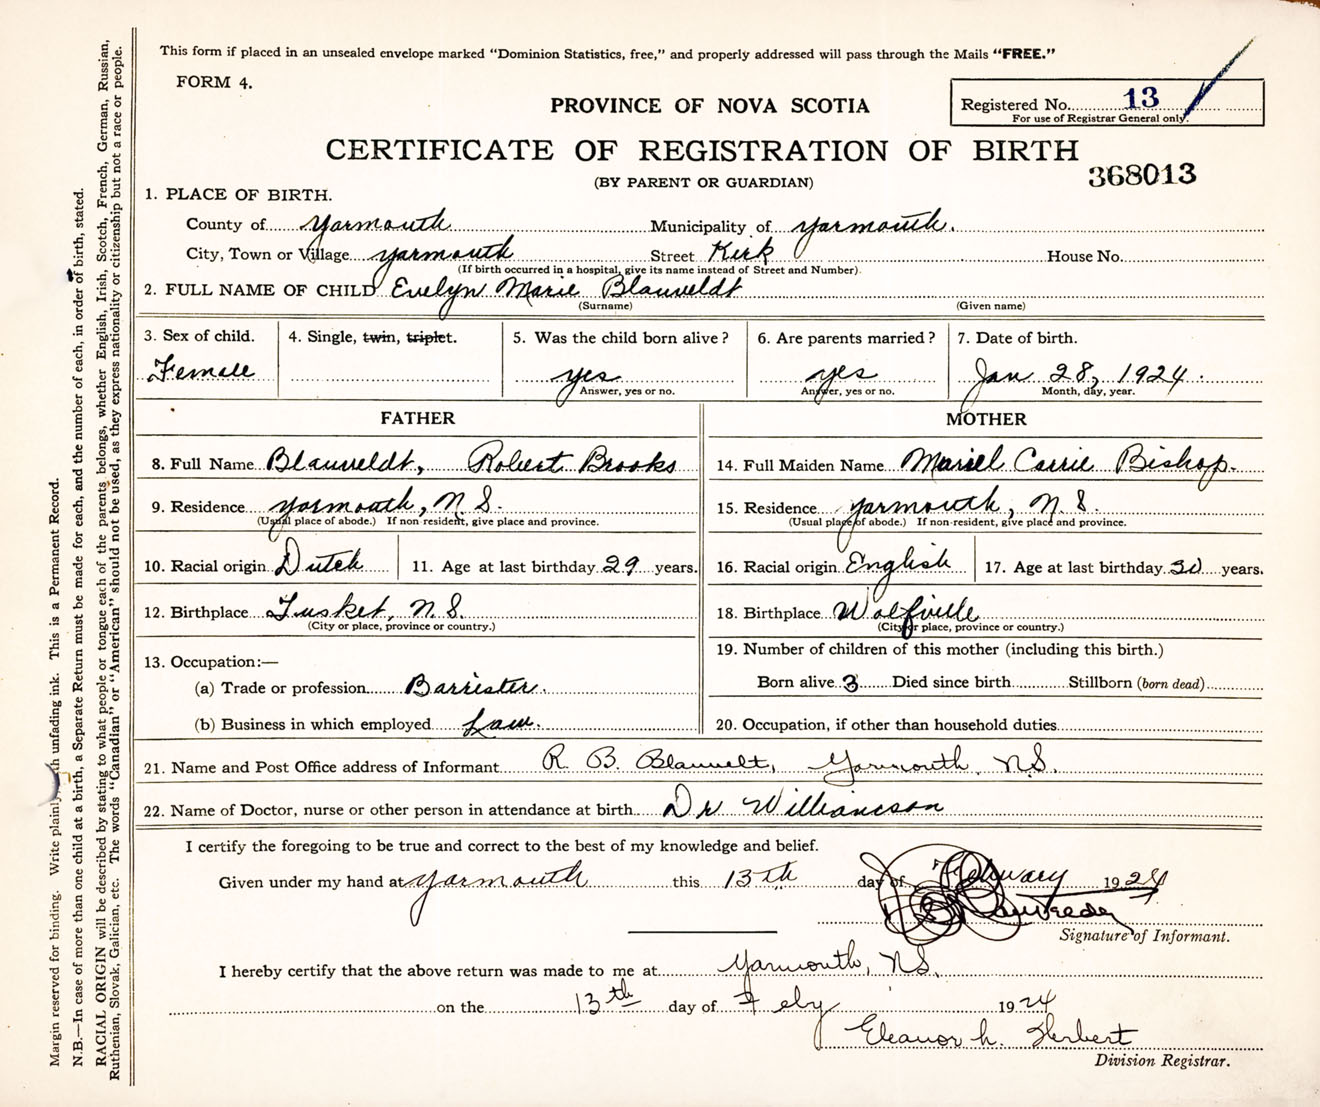 This form if placed in an unsealed envelope marked "Dominion Statistics, free," and properly addressed will pass through the Mails "FREE."
FORM 4.
PROVINCE OF NOVA SCOTIA
Registered No. 13
For use of Registrar General only.
CERTIFICATE OF REGISTRATION OF BIRTH
368013
(BY PARENT OR GUARDIAN)
1. PLACE OF BIRTH.
County of Yarmouth Municipality of Yarmouth.
City, Town or Village Yarmouth Street Kirk House No.
(If birth occurred in a hospital, give its name instead of Street and Number)
2. FULL NAME OF CHILD Evelyn Marie Blauveldt
(Surname) (Given name)
3. Sex of child. 4. Single, twin, triplet. 5. Was the child born alive? 6. Are parents married? 7. Date of birth.
Female yes yes Jan 28, 1924.
Answer, yes or no. Answer, yes or no. Month, day, year.
FATHER MOTHER
8. Full Name Blauveldt, Robert Brooks 14. Full Maiden Name Mariel Carrie Bishop.
9. Residence Yarmouth, N.S. 15. Residence Yarmouth, N.S.
(Usual place of abode.) If non-resident, give place and province. (Usual place of abode.) If non-resident, give place and province.
10. Racial origin Dutch 11. Age at last birthday 29 years. 16. Racial origin English 17. Age at last birthday 30 years.
12. Birthplace Tusket, N.S. 18. Birthplace Wolfville
(City or place, province or country.) (City or place, province or country.)
13. Occupation:— 19. Number of children of this mother (including this birth.)
(a) Trade or profession Barrister. Born alive 3 Died since birth Stillborn (born dead)
(b) Business in which employed Law. 20. Occupation, if other than household duties
21. Name and Post Office address of Informant R. B. Blauvelt, Yarmouth N.S.
22. Name of Doctor, nurse or other person in attendance at birth. Dr Williamson
I certify the foregoing to be true and correct to the best of my knowledge and belief.
Given under my hand at Yarmouth this 13th day of February 1924
Signature of Informant.
I hereby certify that the above return was made to me at Yarmouth, N.S.
on the 13th day of Feby 1924
Eleanor h. Herbert
Division Registrar.
Margin reserved for binding. Write plainly with unfading ink. This is a Permanent Record.
N.B.—In case of more than one child at a birth, a Separate Return must be made for each, and the number of each, in order of birth, stated.
RACIAL ORIGIN will be described by stating to what people or tongue each of the parents belongs, whether English, Irish, Scotch, French, German, Russian,
Ruthenian, Slovak, Galician, etc. The words "Canadian" or "American" should not be used, as they express nationality or citizenship but not a race or people.